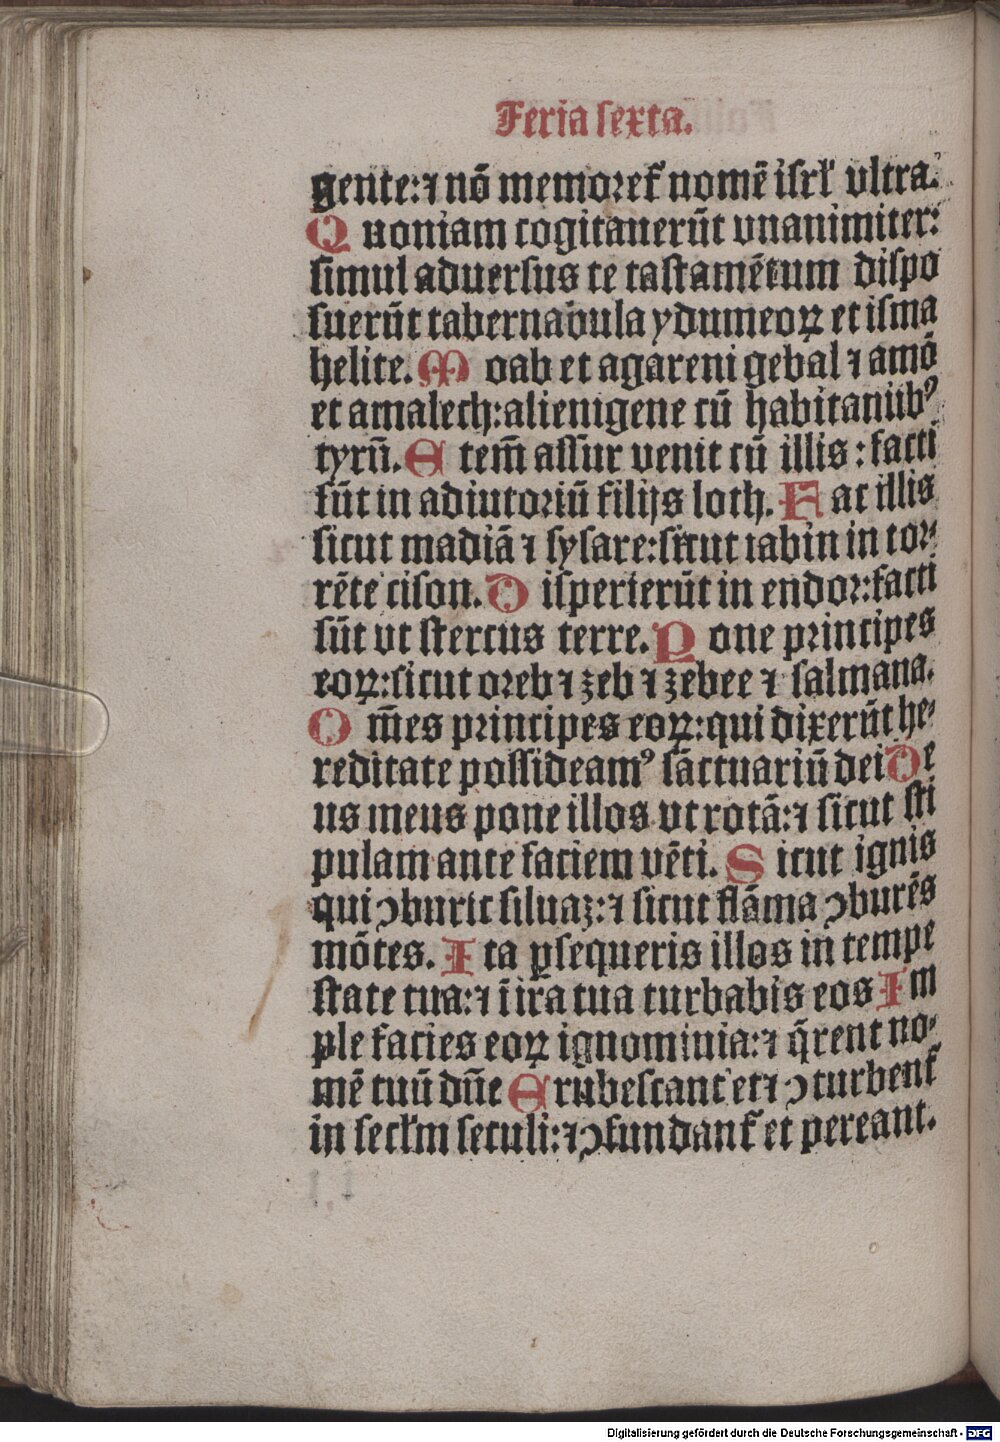 Feria sexta.
gente:⁊ nō memoret᷑ nomē isrl' vltra.
Quoniam cogitauerūt vnanimiter:
simul aduersus te tastamētum dispo
suerūt tabernacula ydumeoꝝ et isma
helite. Moab et agareni gebal ⁊ amō
et amalech:alienigene cū habitantibꝰ
tyrū. Etem̄ assur venit cū illis : facti
sūt in adiutoriū filijs loth. Fac illis
sicut madiā ⁊ sysare:sicut iabin in tor-
rēte cison. Disperierūt in endor:facti
sūt vt stercus terre. Pone principes
eoꝝ:sicut oreb ⁊ zeb ⁊ zebee ⁊ salmana.
Om̄es principes eoꝝ:qui dixerūt he-
reditate possideamꝰ sāctuariū dei De
us meus pone illos vt rotā:⁊ sicut sti
pulam ante faciem vēti. Sicut ignis
qui ꝯburit siluaz:⁊ sicut flāma ꝯburēs
mōtes. Ita ꝑsequeris illos in tempe
state tua:⁊ ī ira tua turbabis eos Im
ple facies eoꝝ ignominia:⁊ q̄rent no-
mē tuū dn̄e Erubescant et ⁊ ꝯturbent᷑
in secl'm seculi:⁊ ꝯfundant᷑ et pereant.
Digitalisierung gefördert durch die Deutsche Forschungsgemeinschaft - DFG